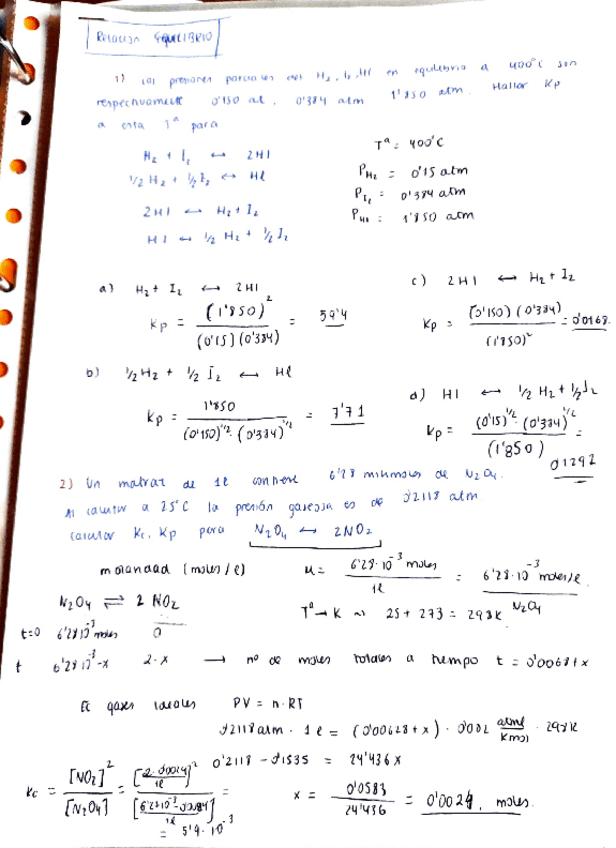 RELACIÓN EQUILIBRIO
1) las presiones parciales del H2, I2, HI en equilibrio a 400°C son
respectivamente 0'150 at, 0'384 atm 1'850 atm. Hallar Kp
a esta Tª para
H2 + I2 ↔ 2HI
1/2 H2 + 1/2 I2 ↔ HI
2HI ↔ H2 + I2
HI ↔ 1/2 H2 + 1/2 I2
Tª = 400°C
P_H2 = 0'15 atm
P_I2 = 0'384 atm
P_HI = 1'850 atm
a) H2 + I2 ↔ 2HI
Kp = (1'850)^2 / (0'15)(0'384) = 59'4
b) 1/2 H2 + 1/2 I2 ↔ HI
Kp = 1'850 / (0'150)^1/2 · (0'384)^1/2 = 7'71
c) 2HI ↔ H2 + I2
Kp = (0'150)(0'384) / (1'850)^2 = 0'0168
d) HI ↔ 1/2 H2 + 1/2 I2
Kp = (0'15)^1/2 · (0'384)^1/2 / (1'850) =
0'1292
2) Un matraz de 1l contiene 6'28 milimoles de N2O4.
Al calentar a 25°C la presión gaseosa es de 0'2118 atm
calcular Kc, Kp para N2O4 ↔ 2NO2
molaridad (moles/l) M = 6'28·10^-3 moles / 1l = 6'28·10^-3 moles/l
N2O4
N2O4 ⇌ 2 NO2
Tª → K 25 + 273 = 298K
t=0 6'28·10^-3 moles 0
t 6'28·10^-3-x 2·x → nº de moles totales a tiempo t = 0'00628+x
Ec gases ideales PV = n·RT
0'2118 atm · 1l = (0'00628+x) · 0'082 atm·l/K·mol · 298K
0'2118 - 0'1535 = 24'436x
x = 0'0583 / 24'436 = 0'0024 moles.
Kc = [NO2]^2 / [N2O4] = [2·0'0024 / 1l]^2 / [6'28·10^-3 - 0'0024 / 1l] =
= 5'9·10^-3